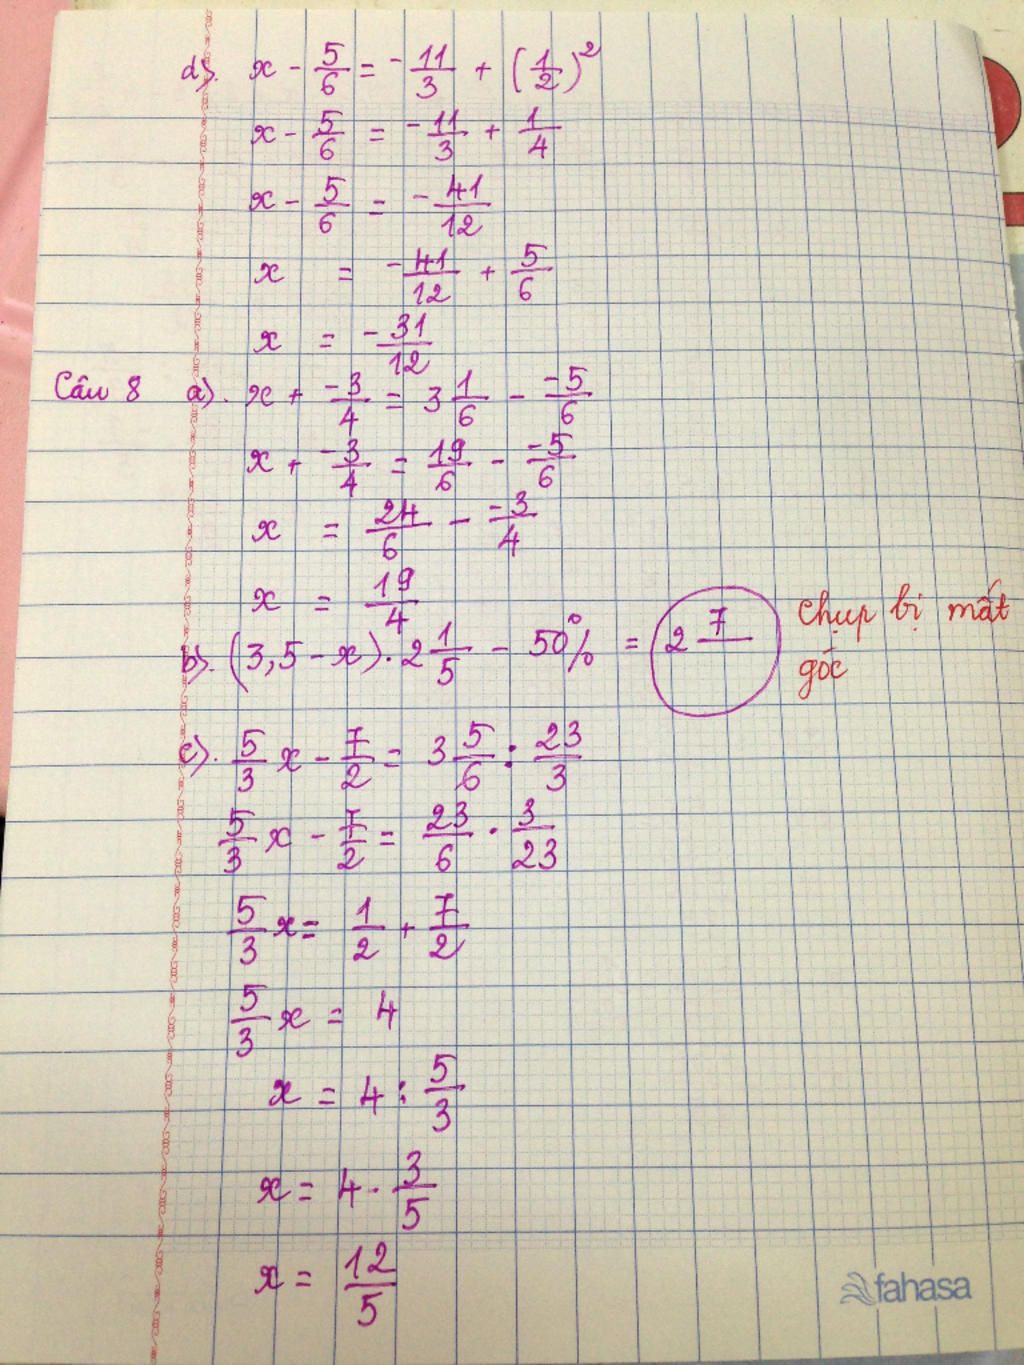 d). x - 5/6 = -11/3 + (1/2)²
x - 5/6 = -11/3 + 1/4
x - 5/6 = -41/12
x = -41/12 + 5/6
x = -31/12
Câu 8 a). x + -3/4 = 3 1/6 - -5/6
x + -3/4 = 19/6 - -5/6
x = 24/6 - -3/4
x = 19/4
b). (3,5 - x) . 2 1/5 - 50% = 2 7/ Chụp bị mất
góc
c). 5/3 x - 7/2 = 3 5/6 : 23/3
5/3 x - 7/2 = 23/6 . 3/23
5/3 x = 1/2 + 7/2
5/3 x = 4
x = 4 : 5/3
x = 4 . 3/5
x = 12/5
fahasa